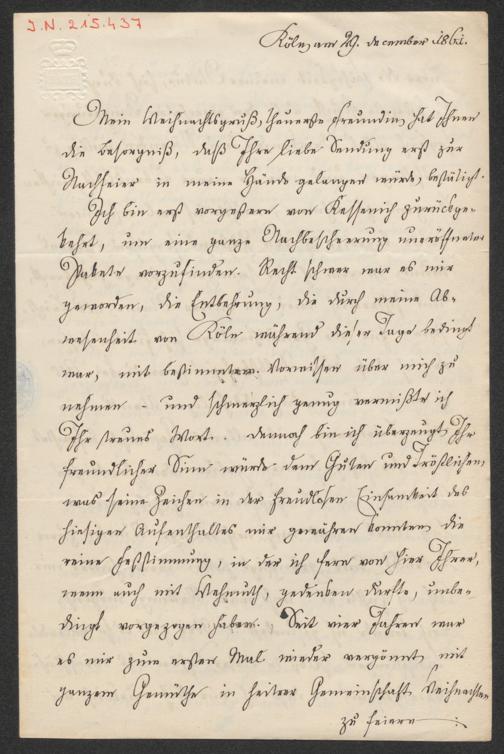 I.N. 215.437
Köln, am 29. December 1861.
Mein Weihnachtsgruß, theuerste Freundin, hat Ihnen
die Besorgniß, daß Ihre liebe Sendung erst zur
Nachfeier in meine Hände gelangen würde, bestätigt.
Ich bin erst vorgestern von Kessenich zurückge-
kehrt, um eine ganze Nachbescheerung uneröffneter
Pakete vorzufinden. Recht schwer war es mir
geworden, die Entbehrung, die durch meine Ab-
wesenheit von Köln während dieser Tage bedingt
war, mit bestimmtem Vorwissen über mich zu
nehmen – und schmerzlich genug vermißte ich
Ihr treues Wort. – Dennoch bin ich überzeugt, Ihr
freundlicher Sinn würde dem Guten und Tröstlichen,
was seine Zeichen in der freudlosen Einsamkeit des
hiesigen Aufenthaltes mir gewähren konnten, die
reine Feststimmung, in der ich fern von hier Ihrer,
wenn auch mit Wehmuth, gedenken durfte, unbe-
dingt vorgezogen haben. Seit vier Jahren war
es mir zum ersten Mal wieder vergönnt, mit
ganzem Gemüthe in heitrer Gemeinschaft Weihnachten
zu feiern